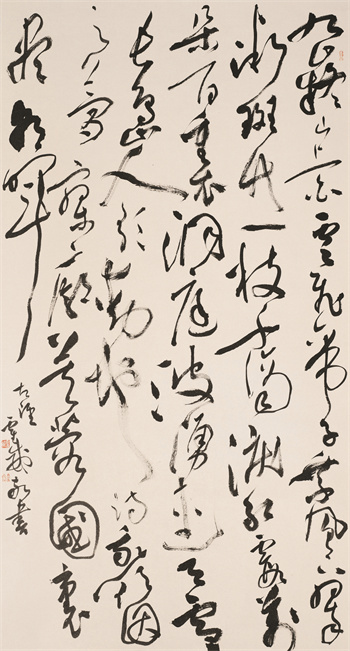 九嶷山上白雲飛帝子乘風下翠
微斑竹一枝千滴淚紅霞萬
朵百重衣洞庭波湧連天雪
長島人歌動地詩我欲因
之夢寥廓芙蓉國裏
盡朝暉
敬書